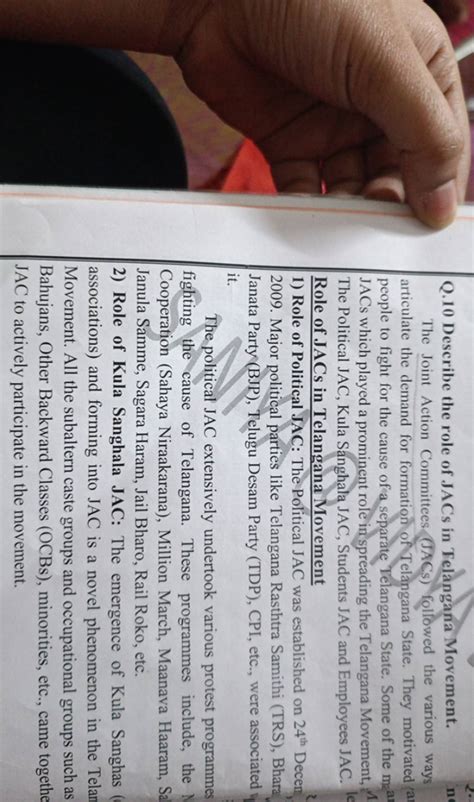 Q.10 Describe the role of JACs in Telangana Movement.
The Joint Action Committees (JACs) followed the various ways
articulate the demand for formation of Telangana State. They motivated
people to fight for the cause of a separate Telangana State. Some of the
JACs which played a prominent role in spreading the Telangana Movement,
The Political JAC, Kula Sanghala JAC, Students JAC and Employees JAC.
Role of JACs in Telangana Movement
1) Role of Political JAC: The Political JAC was established on 24th Decen
2009. Major political parties like Telangana Rasthtra Samithi (TRS), Bhara
Janata Party (BJP), Telugu Desam Party (TDP), CPI, etc., were associated
it.
The political JAC extensively undertook various protest programmes
fighting the cause of Telangana. These programmes include, the
Cooperation (Sahaya Niraakarana), Million March, Maanava Haaram, Sa
Janula Samme, Sagara Haram, Jail Bharo, Rail Roko, etc.
2) Role of Kula Sanghala JAC: The emergence of Kula Sanghas
associations) and forming into JAC is a novel phenomenon in the Telan
Movement. All the subaltern caste groups and occupational groups such as
Bahujans, Other Backward Classes (OCBs), minorities, etc., came togethe
JAC to actively participate in the movement.